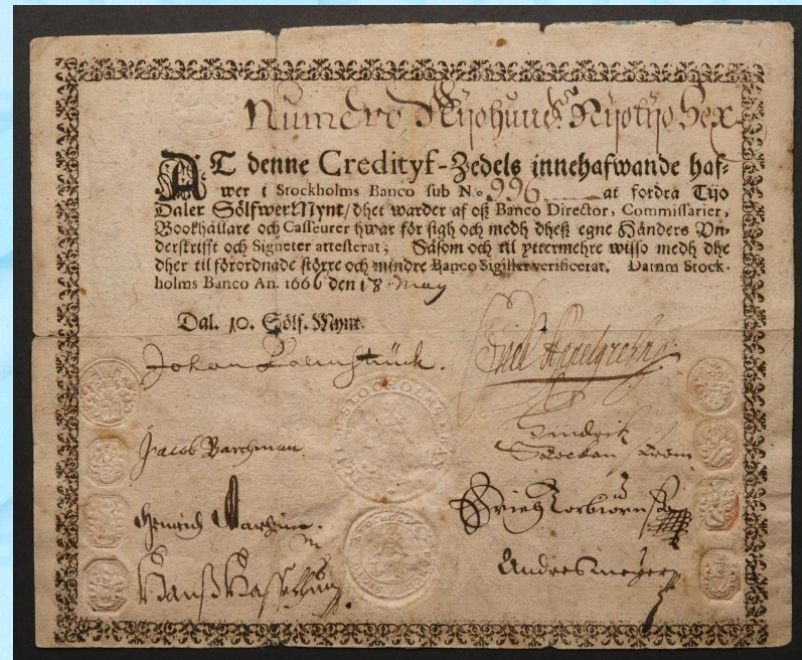 Numero Nijohund: Nijotijo Sex
AT denne Credityf-Zedels innehafwande haf-
wer i Stockholms Banco sub N:o 996 at fordra Tijo
Daler SölfwerMynt/ dhet warder af oß Banco Director, Commissarier,
Bookhållare och Casseurer hwar för sigh och medh dheß egne Händers Vn-
derskrifft och Signeter attesterat; Såsom och til yttermehre wisso medh dhe
dher til förordnade större och mindre Banco Sigiller verificerat. Datum Stock-
holms Banco An. 1666 den 18 May
Dal. 10. Sölf. Mynt.
Johan Palmstruck.
Jacob Barchman
Hindrich
Andres meijer